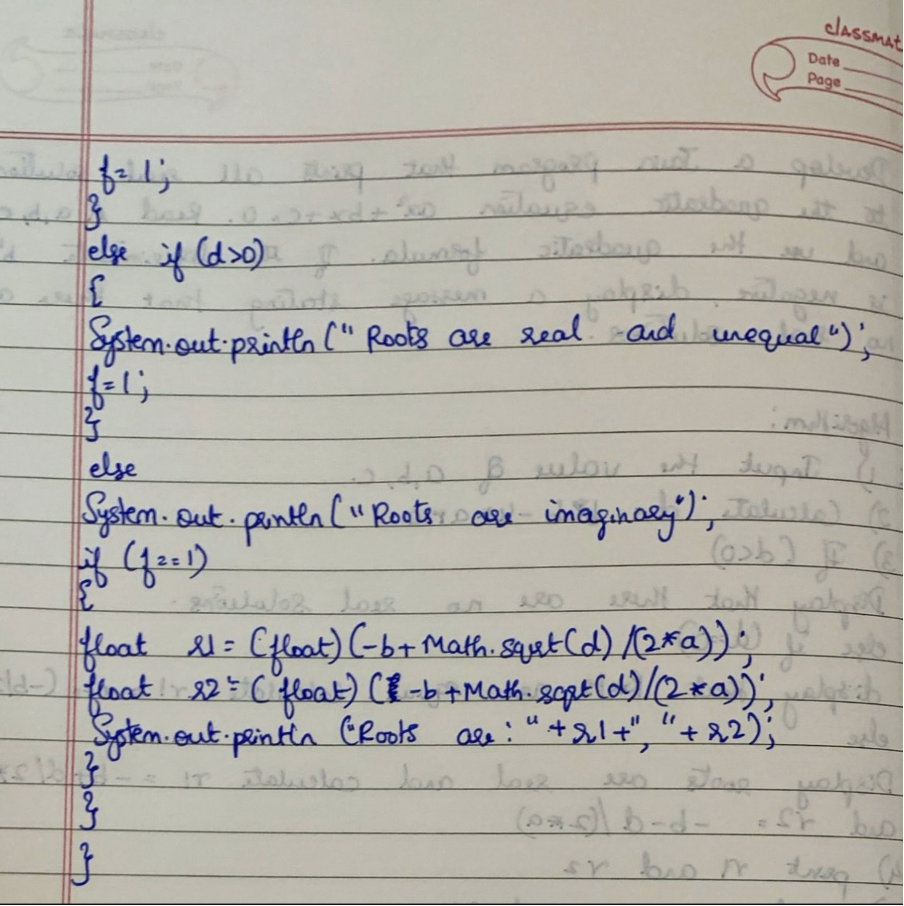 classmat
Date
Page
f=1;
}
else if (d>0)
{
System.out.println (" Roots are real and unequal");
f=1;
}
else
System.out.println ("Roots are imaginary");
if (f==1)
{
float r1 = (float) (-b + Math.sqrt(d) /(2*a));
float r2 = (float) (-b + Math.sqrt(d)/(2*a));
System.out.println ("Roots are: "+r1+", "+r2);
}
}
}